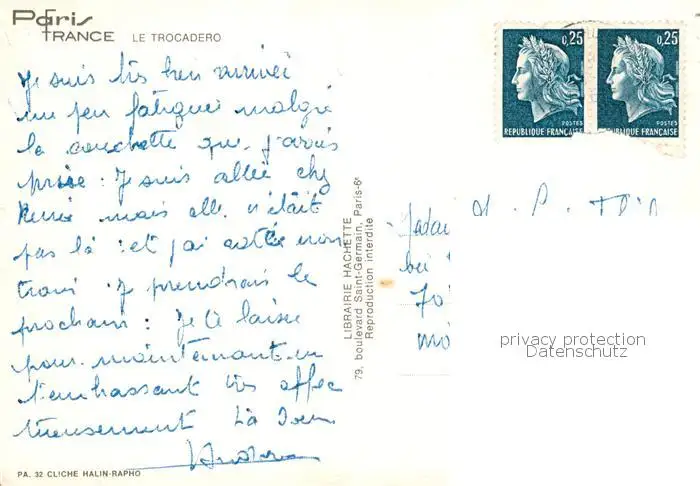 Paris
FRANCE LE TROCADERO
Je suis très bien arrivée
un peu fatiguée malgré
la couchette que j'avais
prise : Je suis allée chez
Renée mais elle n'était
pas là : et j'ai
Je prendrais le
prochain : Je te laisse
pour maintenant en
t'embrassant très affec
tueusement
PA. 32 CLICHE HALIN-RAPHO
LIBRAIRIE HACHETTE
79, boulevard Saint-Germain, Paris-6e
Reproduction interdite
0,25
POSTES
REPUBLIQUE FRANÇAISE
0,25
POSTES
REPUBLIQUE FRANÇAISE
bei
privacy protection
Datenschutz